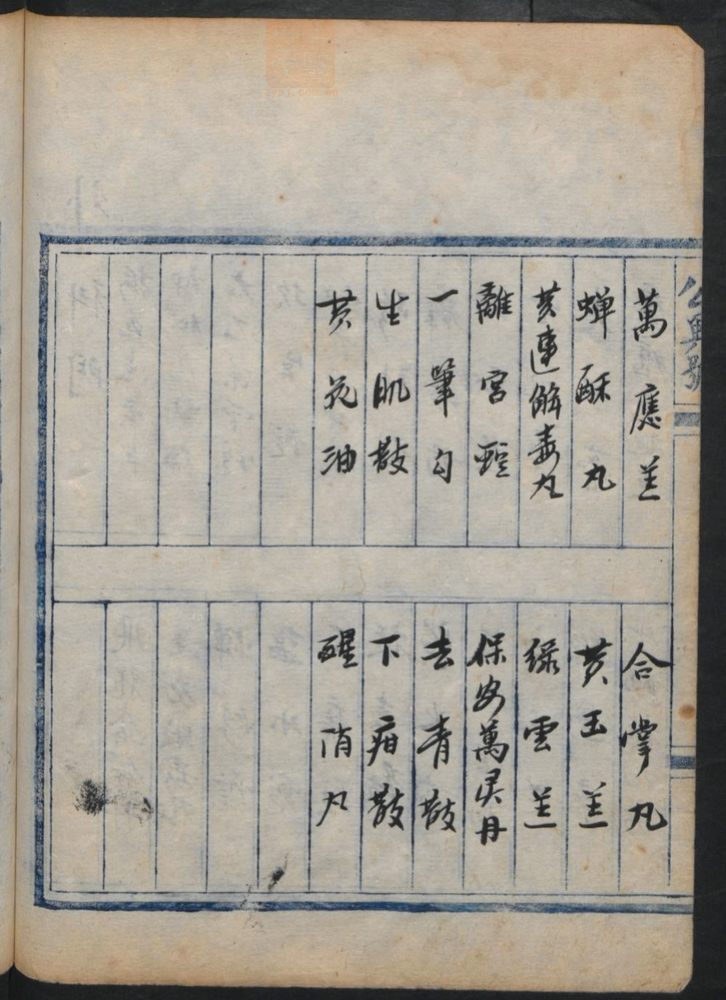 公興號
萬應羔
蟬酥丸
黄連解毒丸
離宮錠
一筆勾
生肌散
黄花油
合掌丸
黄玉羔
绿雲羔
保安萬灵丹
去青散
下疳散
醒消丸